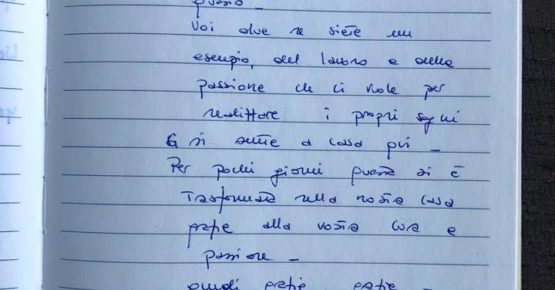 questo -
Voi due ne siete un
esempio, del lavoro e della
passione che ci vuole per
realizzare i propri sogni
E si sente a casa qui -
Per pochi giorni questa si è
trasformata nella nostra casa
grazie alla vostra cura e
passione -
quindi grazie grazie -